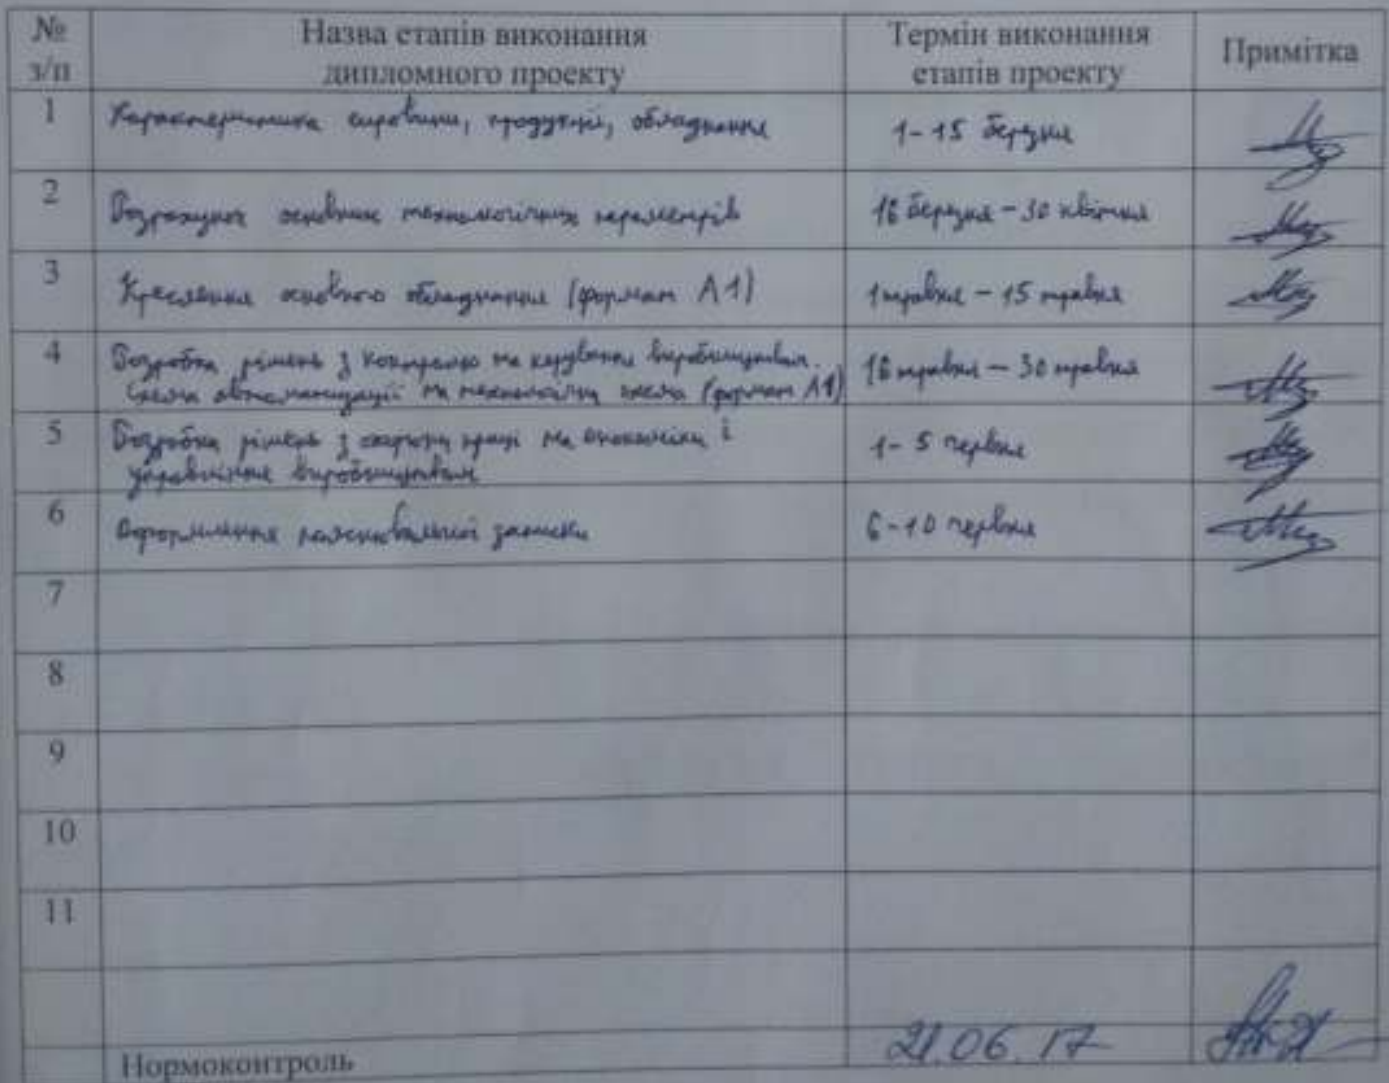 № Назва етапів виконання Термін виконання Примітка
з/п дипломного проекту етапів проекту
1 Характеристика сировини, продукції, обладнання 1-15 березня
2 Розрахунок основних технологічних параметрів 16 березня - 30 квітня
3 Креслення основного обладнання (формат А1) 1 травня - 15 травня
4 Розробка рішень з контролю та керування виробництвом. 16 травня - 30 травня
Схема автоматизації та технологічна схема (формат А1)
5 Розробка рішень з охорони праці та економіки і 1-5 червня
управління виробництвом
6 Оформлення пояснювальної записки 6-10 червня
7
8
9
10
11
Нормоконтроль 21.06.17